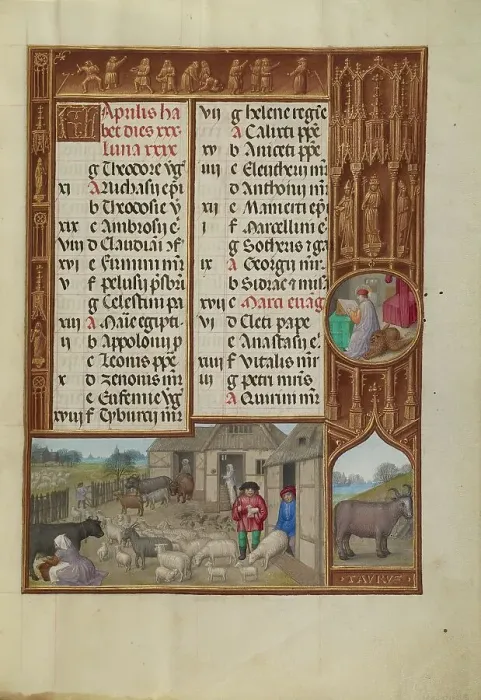 Aprilis ha
bet dies xxx
luna xxix
g Theodore v̄g
xi A Ruchasii ep̄i
b Theodosie v̄
xix c Ambrosii e
viii d Claudiai ɔf
xvi e Firmini mr̄
v f pelusii p̄sbri
g Celestini pa
xiii A Marie egipti
ii b Appolonii p
c Leonis pp̄e
x d Zenonis mr̄
e Eufemie v̄g
xviii f Tyburcii mr̄
vii g helene regīe
A Calixti pp̄e
xv b Aniceti pp̄e
iiii c Eleutherii mr̄
d Anthonii mr̄
xii e Mamerti ep̄i
i f Marcellini e
g Sotheris
ix A Georgii mr̄
b Sidrac
xvii c Marci euāg
vi d Cleti pape
e Anastasii e
xiiii f Vitalis mr̄
iii g petri mr̄is
A Quirini mr̄
TAVRVS